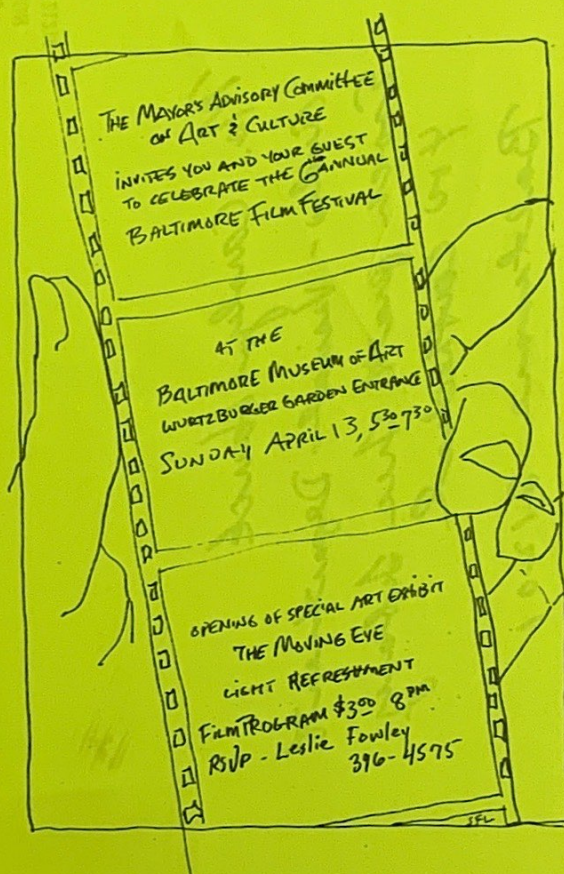 THE MAYOR'S ADVISORY COMMITTEE
ON ART & CULTURE
INVITES YOU AND YOUR GUEST
TO CELEBRATE THE 6th ANNUAL
BALTIMORE FILM FESTIVAL
AT THE
BALTIMORE MUSEUM OF ART
WURTZBURGER GARDEN ENTRANCE
SUNDAY APRIL 13, 530-730
OPENING OF SPECIAL ART EXHIBIT
THE MOVING EYE
LIGHT REFRESHMENT
FILM PROGRAM $3.00 8PM
RSVP - Leslie Fowley
396-4575
SFL